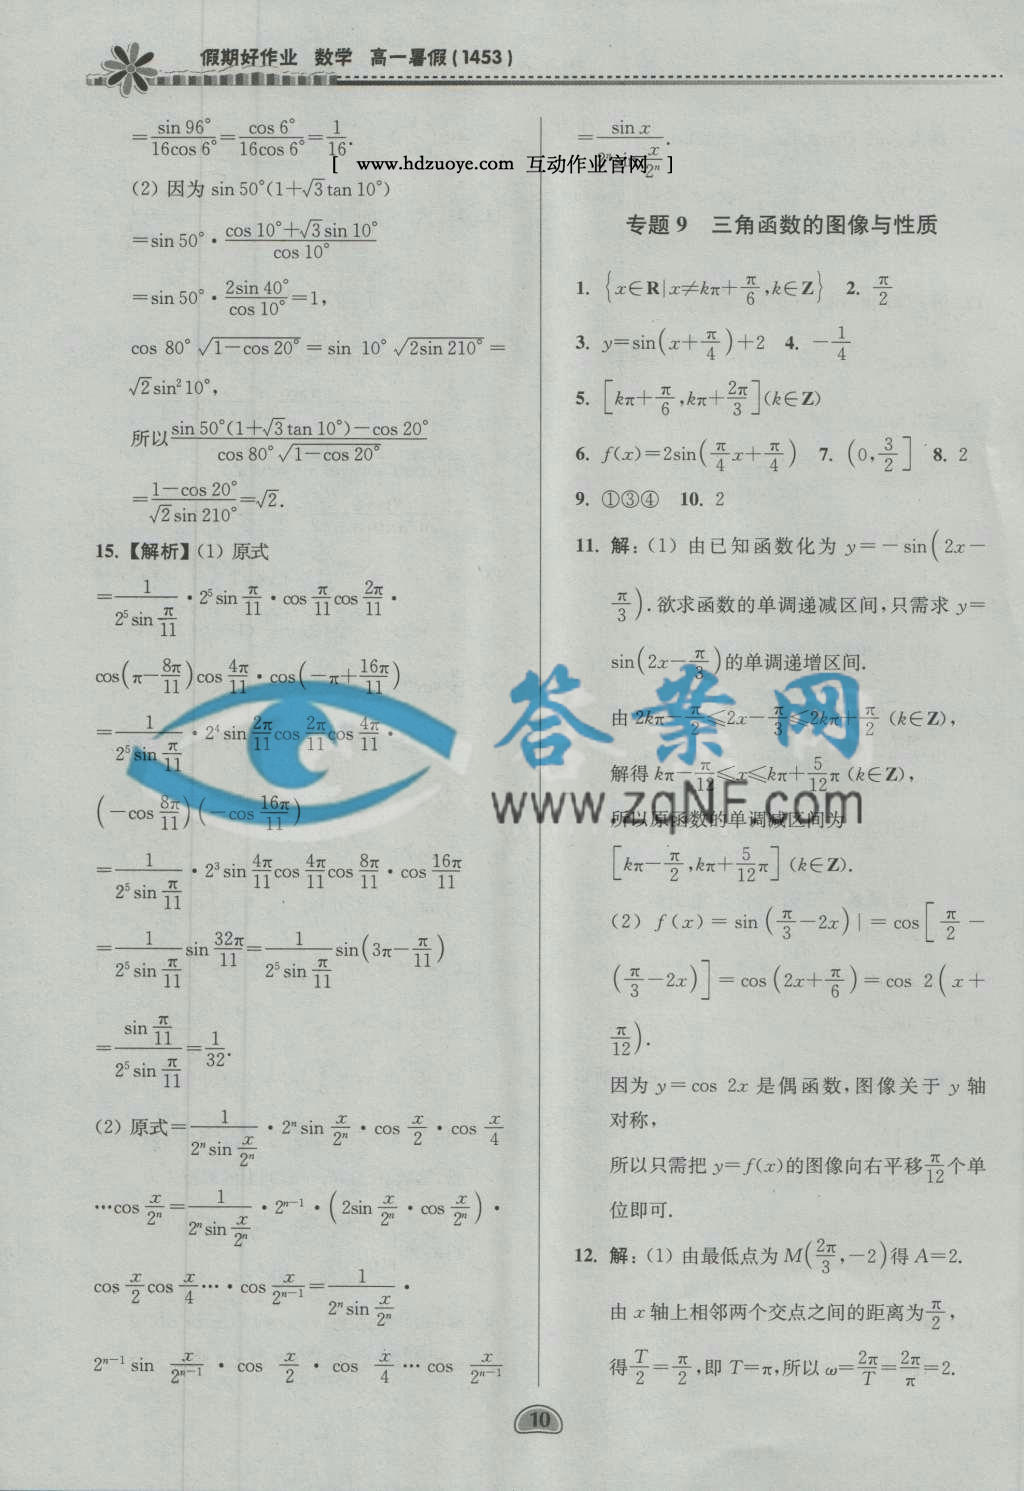 假期好作业 数学 高一暑假(1453)
=sin 96°/16cos 6°=cos 6°/16cos 6°=1/16.
(2) 因为 sin 50°(1+√3 tan 10°)
=sin 50°·(cos 10°+√3 sin 10°)/cos 10°
=sin 50°·2sin 40°/cos 10°=1,
cos 80° √(1-cos 20°) = sin 10° √(2sin 210°) =
√2 sin²10°,
所以 (sin 50°(1+√3 tan 10°)-cos 20°)/(cos 80° √(1-cos 20°))
=(1-cos 20°)/(√2 sin 210°)=√2.
15.【解析】(1) 原式
=1/(2⁵ sin π/11)·2⁵ sin π/11·cos π/11 cos 2π/11·
cos(π-8π/11)cos 4π/11·cos(-π+16π/11)
=1/(2⁵ sin π/11)·2⁴ sin 2π/11 cos 2π/11 cos 4π/11·
(-cos 8π/11)(-cos 16π/11)
=1/(2⁵ sin π/11)·2³ sin 4π/11 cos 4π/11 cos 8π/11·cos 16π/11
=1/(2⁵ sin π/11) sin 32π/11=1/(2⁵ sin π/11) sin(3π-π/11)
=(sin π/11)/(2⁵ sin π/11)=1/32.
(2) 原式=1/(2ⁿ sin x/2ⁿ)·2ⁿ sin x/2ⁿ·cos x/2·cos x/4
…cos x/2ⁿ=1/(2ⁿ sin x/2ⁿ)·2ⁿ⁻¹·(2sin x/2ⁿ·cos x/2ⁿ)·
cos x/2 cos x/4…·cos x/2ⁿ⁻¹=1/(2ⁿ sin x/2ⁿ)·
2ⁿ⁻¹ sin x/2ⁿ⁻¹·cos x/2·cos x/4…cos x/2ⁿ⁻¹
=sin x/(2ⁿ sin x/2ⁿ).
[ www.hdzuoye.com 互动作业官网 ]
专题 9 三角函数的图像与性质
1. {x∈R|x≠kπ+π/6,k∈Z} 2. π/2
3. y=sin(x+π/4)+2 4. -1/4
5. [kπ+π/6,kπ+2π/3](k∈Z)
6. f(x)=2sin(π/4 x+π/4) 7. (0,3/2] 8. 2
9. ①③④ 10. 2
11. 解:(1) 由已知函数化为 y=-sin(2x-
π/3).欲求函数的单调递减区间,只需求 y=
sin(2x-π/3)的单调递增区间.
由 2kπ-π/2≤2x-π/3≤2kπ+π/2 (k∈Z),
解得 kπ-π/12≤x≤kπ+5/12π (k∈Z),
所以原函数的单调减区间为
[kπ-π/2,kπ+5/12π](k∈Z).
(2) f(x)=sin(π/3-2x)|=cos[π/2-
(π/3-2x)]=cos(2x+π/6)=cos 2(x+
π/12).
因为 y=cos 2x 是偶函数,图像关于 y 轴
对称,
所以只需把 y=f(x)的图像向右平移π/12个单
位即可.
12. 解:(1) 由最低点为 M(2π/3,-2)得 A=2.
由 x 轴上相邻两个交点之间的距离为π/2,
得T/2=π/2,即 T=π,所以 ω=2π/T=2π/π=2.
答案网
www.zqNF.com
10